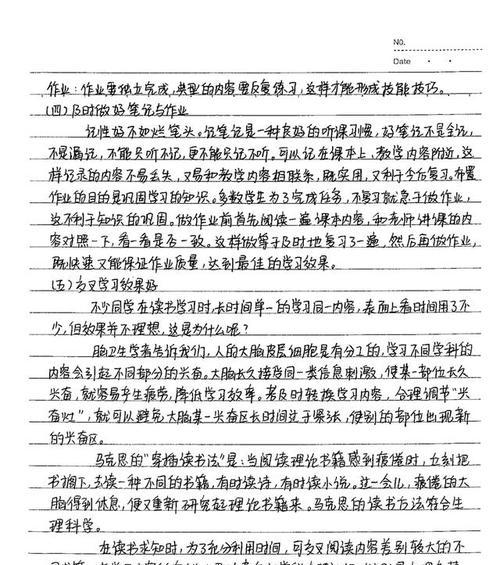 NO.
Date
作业：作业要独立完成，典型的内容要反复练习，这样才能形成技能技巧。
(四)及时做好笔记与作业
记性好不如烂笔头。记笔记是一种良好的听课习惯，好笔记不是全记，
不是漏记，不能只听不记，更不能只记不听。可以记在课本上、教学内容附近，这
样记录的内容不易丢失，又易和教学内容相联系，既实用，又利于今后复习。布置
作业的目的是巩固学习的知识。多数学生为了完成任务，不复习就急于做作业，
这不利于知识的巩固。做作业前首先阅读一遍课本内容，和老师讲课的内
容对照一下，看一看是否一致。这样做等于及时地复习了一遍，然后再做作业，
既快速又能保证作业质量，达到最佳的学习效果。
(五)交叉学习效果好
不少同学在读书学习时，长时间单一的学习同一内容，表面上看时间用了不
少，但效果并不理想，这是为什么呢？
脑卫生学者告诉我们，人的大脑皮层细胞是有分工的，学习不同学科的
内容会引起不同部分的兴奋。大脑长久接受同一类信息刺激，使某一部位长久
兴奋，就容易产生疲劳，降低学习效率。若及时转换学习内容，合理调节“兴
奋灶”，就可以避免大脑某一兴奋区长时间过于紧张，使别的部位出现新
的兴奋区。
马克思的“穿插读书法”是：当阅读理论书籍感到疲倦时，立刻把
书搁下，去读一种不同的书籍，有时读诗，有时读小说。过一会儿，疲倦的大
脑得到休息，便又重新研究起理论书籍来。马克思的读书方法符合生
理科学。
在读书求知时，为了充分利用时间，可交叉阅读内容差别较大的不